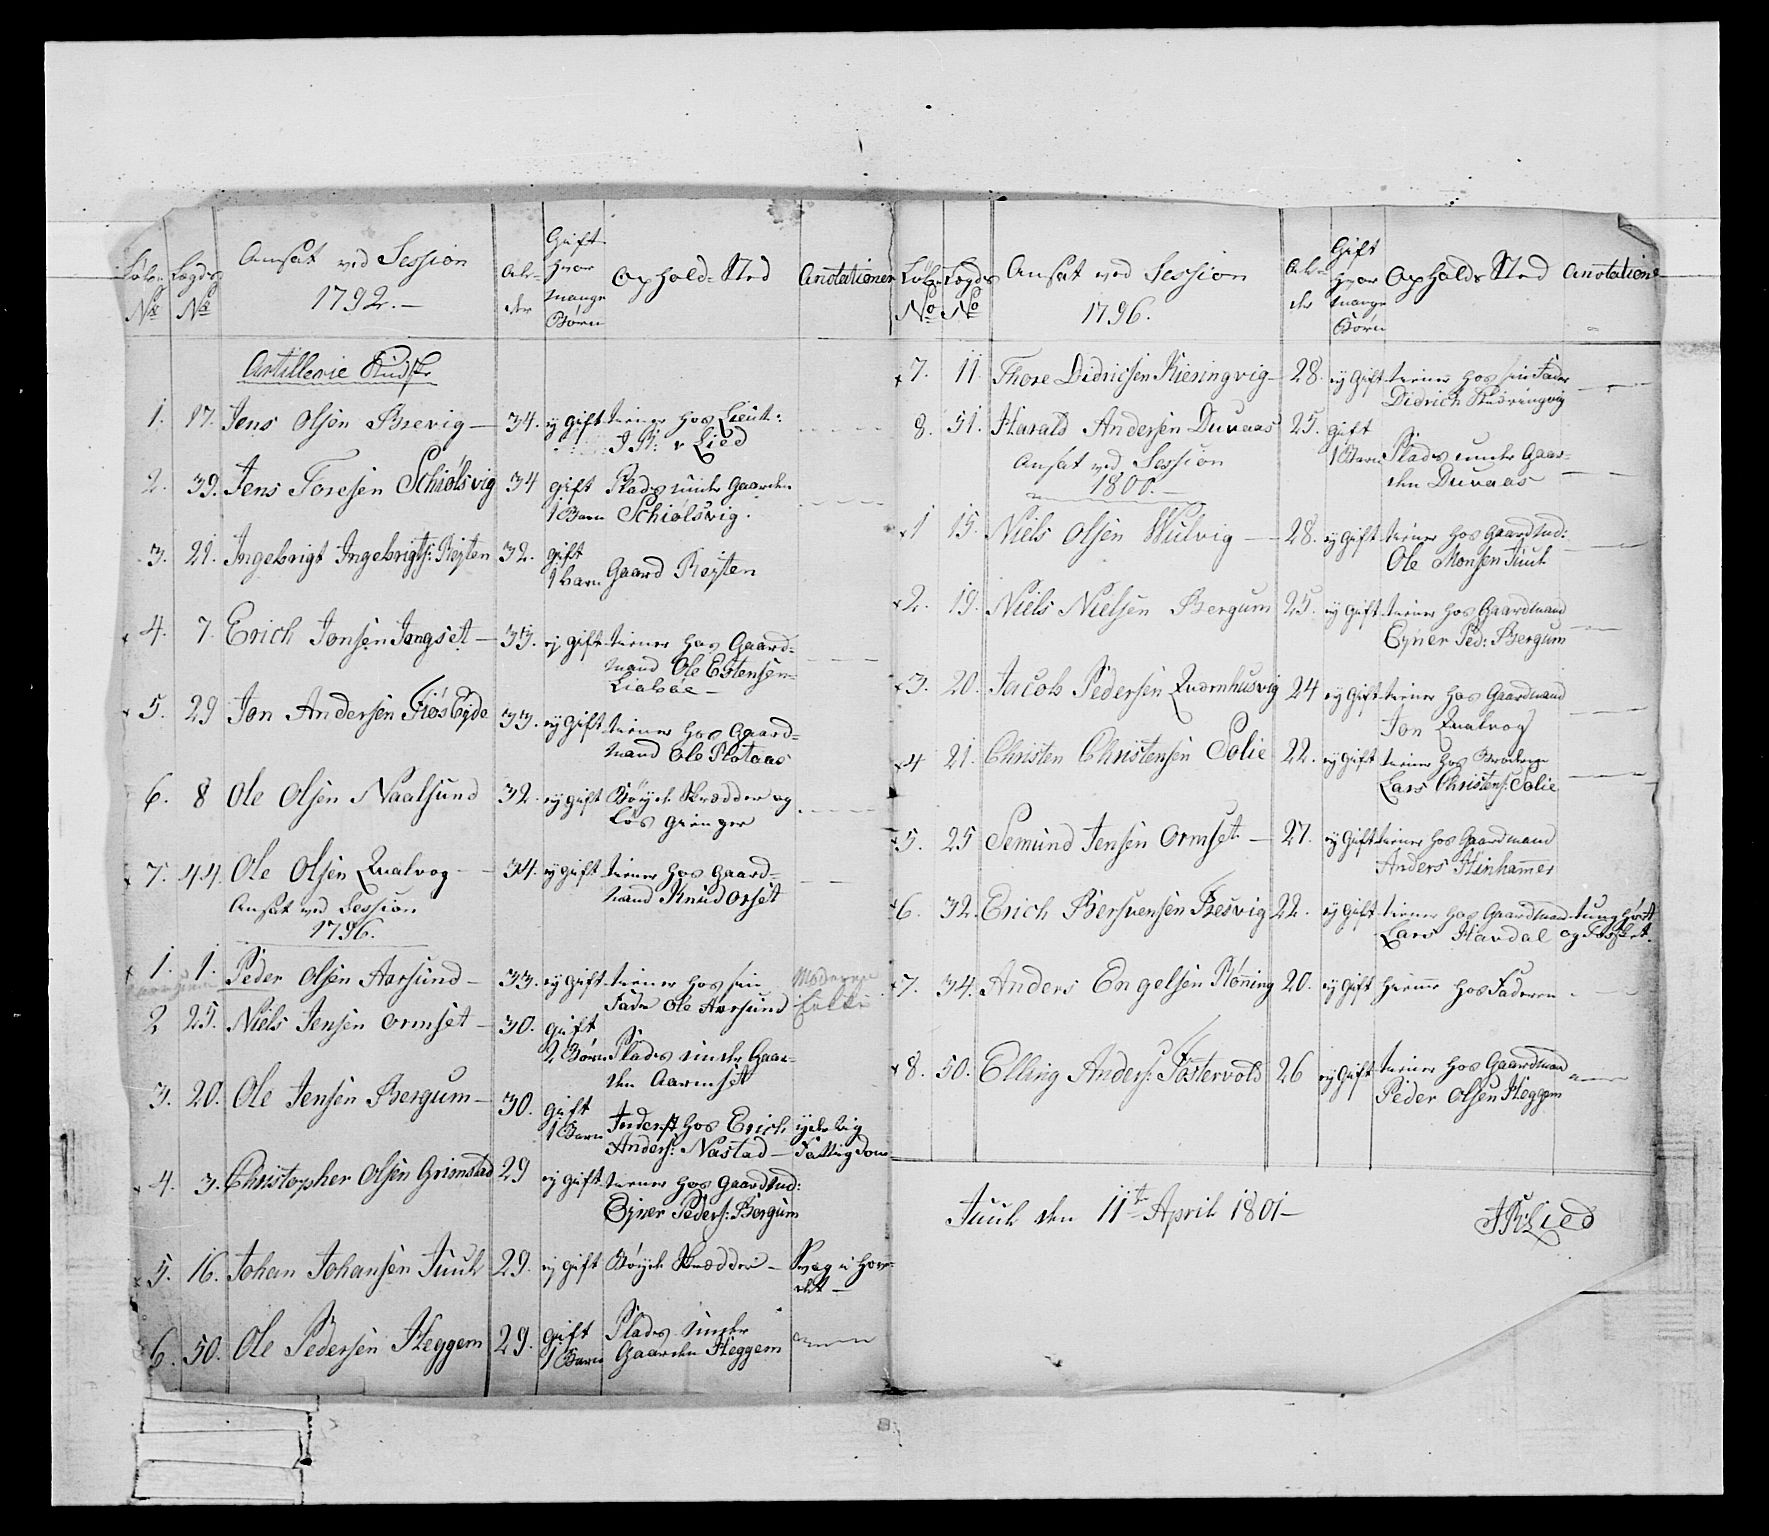 Løbe No Lægds No Ansat ved Session 1792.— Al-der Gift hvor mange Børn Ophold-Sted Anotationer
Artillerie Kudsk
1. 17. Jens Olsen Brevig — 34. ej gift tiener hos Lieut:
J R: v Lied
2. 39. Jens Toresen Schiølsvig 34 gift Plads under Gaarden
1 Barn Schiølsvig.
3. 21. Ingebrigt Ingebrigts: Røjten 32. gift
1 barn Gaard Røjten
4. 7. Erich Jonsen Jongset — 33. ej gift tiener hos Gaard-
mand Ole Estensen
Liabøe —
5. 29 Jon Andersen Fiøs Eyde 33. ej gift tiener hos Gaard-
mand Ole Plotaas
6. 8 Ole Olsen Naalsund 32. ej gift Bøyde Skrædder og
Løs Giænger
7. 44. Ole Olsen Qvalvog — 34. ej gift tiener hos Gaard-
mand Knud Orset
Ansat ved Session
1796.
1. 1. Peder Olsen Aarsund — 33. ej gift tiener hos sin Moderen
Fader Ole Aarsund Enke
2 25. Niels Jensen Ormset — 30. gift
2 Børn Plads under Gaar-
den Aarmset
3. 20. Ole Jensen Bergum — 30. gift
1 Barn Inderst hos Erich
Anders: Nastad — Fattigdom
4. 3. Christopher Olsen Grimstad 29 ej gift tiener hos Gaardmd:
Eyner Peders: Bergum
5. 16. Johan Johansen Juul 29. ej gift Bøyde Skrædder — Svag i Hove-
det —
6. 50. Ole Pedersen Heggem 29. gift Plads under
1 Barn Gaarden Heggem
Løbe No Lægds No Ansat ved Session 1796. Al-der Gift hvor mange Børn Opholds Sted Anotatione
7. 11. Thore Didricsen Kieringvig — 28. ej Gift tiener hos sin Fader
Didrich Kieringvig
8. 51. Harald Andersen Duvaas 25. gift
1 Barn Plads under Gaar-
den Duvaas
Ansat ved Session
1800. —
1 15. Niels Olsen Hulvig — 28. ej Gift tiener hos Gaardmd:
Ole Monsen Juul
2. 19. Niels Nielsen Bergum 25. ej gift tiener hos Gaardmand
Eyner Ped: Bergum
3. 20. Jacob Pedersen Qvernhusvig 24 ej gift tiener hos Gaardmand
Jon Qvalvog
4 21. Christen Christensen Solie 22. ej gift tiener hos Broderen
Lars Christens: Solie
5. 25 Semund Jensen Ormset — 27. ej gift tiener hos Gaardmand
Anders Stenhammer
6. 32. Erich Bersvensen Bresvig 22. ej gift tiener hos Gaardmand tunghørt
Lars Havdal og
7. 34. Anders Engelsen Rønning 20. ej gift hiemme hos Faderen
8. 50. Elling Anders: Fostervold 26 ej gift tiener hos Gaardmand
Peder Olsen Heggem
Juul den 11te April 1801 —
J R: Lied